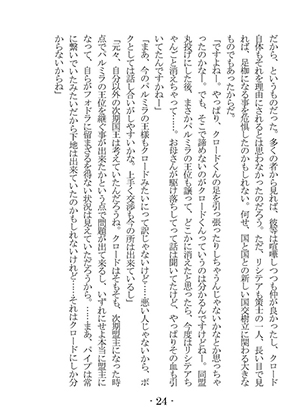 だから、というものだった。多くの者から見れば、彼等は喧嘩しつつも仲が良かったし、クロード
自体もそれを理由にされるとは思わなかったのだろう。ただ、リシテアも策士の一人、長い目で見
れば、足枷になる事を危惧したのかもしれない。何せ、国と国との新しい国交樹立に関わる大きな
ものでもあったからだ。
「ですよねー。やっぱり、クロードくんの足を引っ張ったりしちゃうんじゃないかなとか思っちゃ
ったのかなー。でも、そこで諦めないのがクロードくんっていうのは分かるんですけどねー。同盟
丸投げにした後、まさかパルミラの王位も譲って、どこかに消えたと思ったら、今度はリシテアち
ゃんごと消えちゃって……。お母さんが駆け落ちしてって話は聞いてたけど、やっぱりその血も引
いてたんですかねー」
「まあ、今のパルミラの王様もクロードみたいにって訳じゃないけど……悪い人じゃないから、ボ
クとしては話し合いがしやすいかな。上手く交渉も今の所は出来ているし」
「元々、自分以外の次期国王は考えていたんだろうね。クロードはそもそも、次期盟主になった時
点でパルミラの王位を継ぐ事が出来たかという点で問題が出て来るし、いずれにせよ本当に盟主に
なって、自らがフォドラに留まざるを得ない状況は見えていただろうから。……まあ、パイプは常
に繋いでいたみたいだから下地は出来ていたのかもしれないけれど……それはクロードにしか分
からないからね」
- 24 -